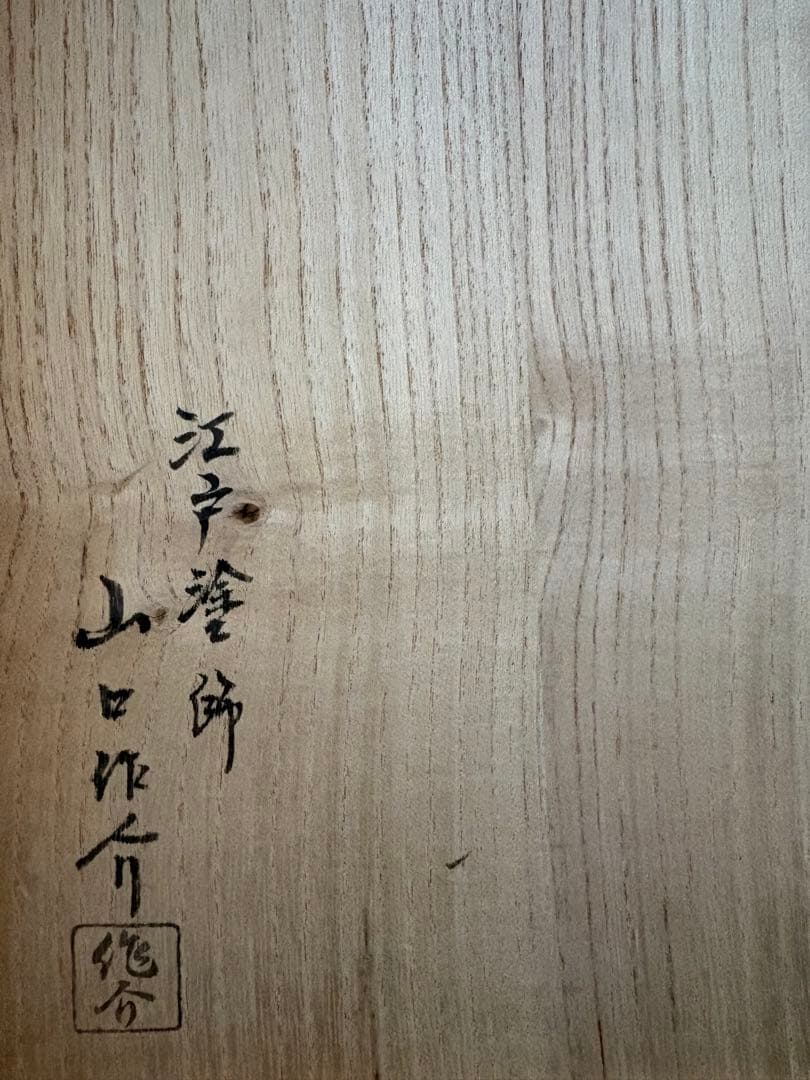 江戸塗師
山口作介
作介